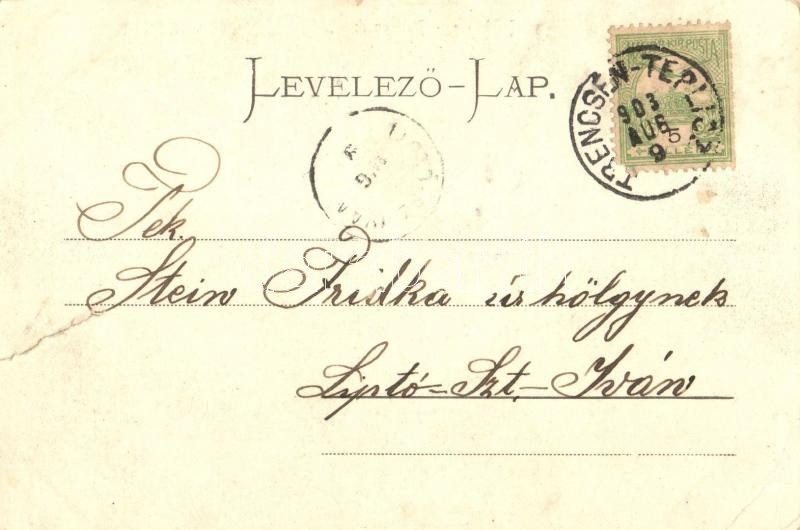 LEVELEZŐ-LAP.
MAGYAR KIR. POSTA
TRENCSÉN-TEPLICZ
903
AUG
9
5
Tek.
Stein Fridka úrhölgynek
Liptó=Szt.-Iván